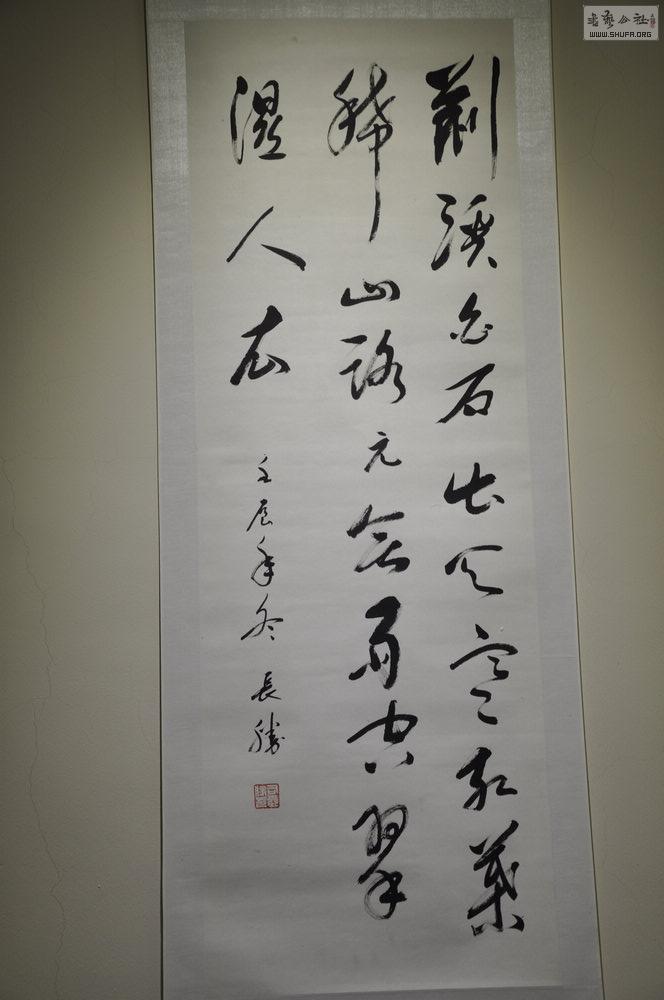 荆溪白石出天寒红葉
稀山路元無雨空翠
湿人衣
壬辰年冬 長勝
書藝公社
WWW.SHUFA.ORG